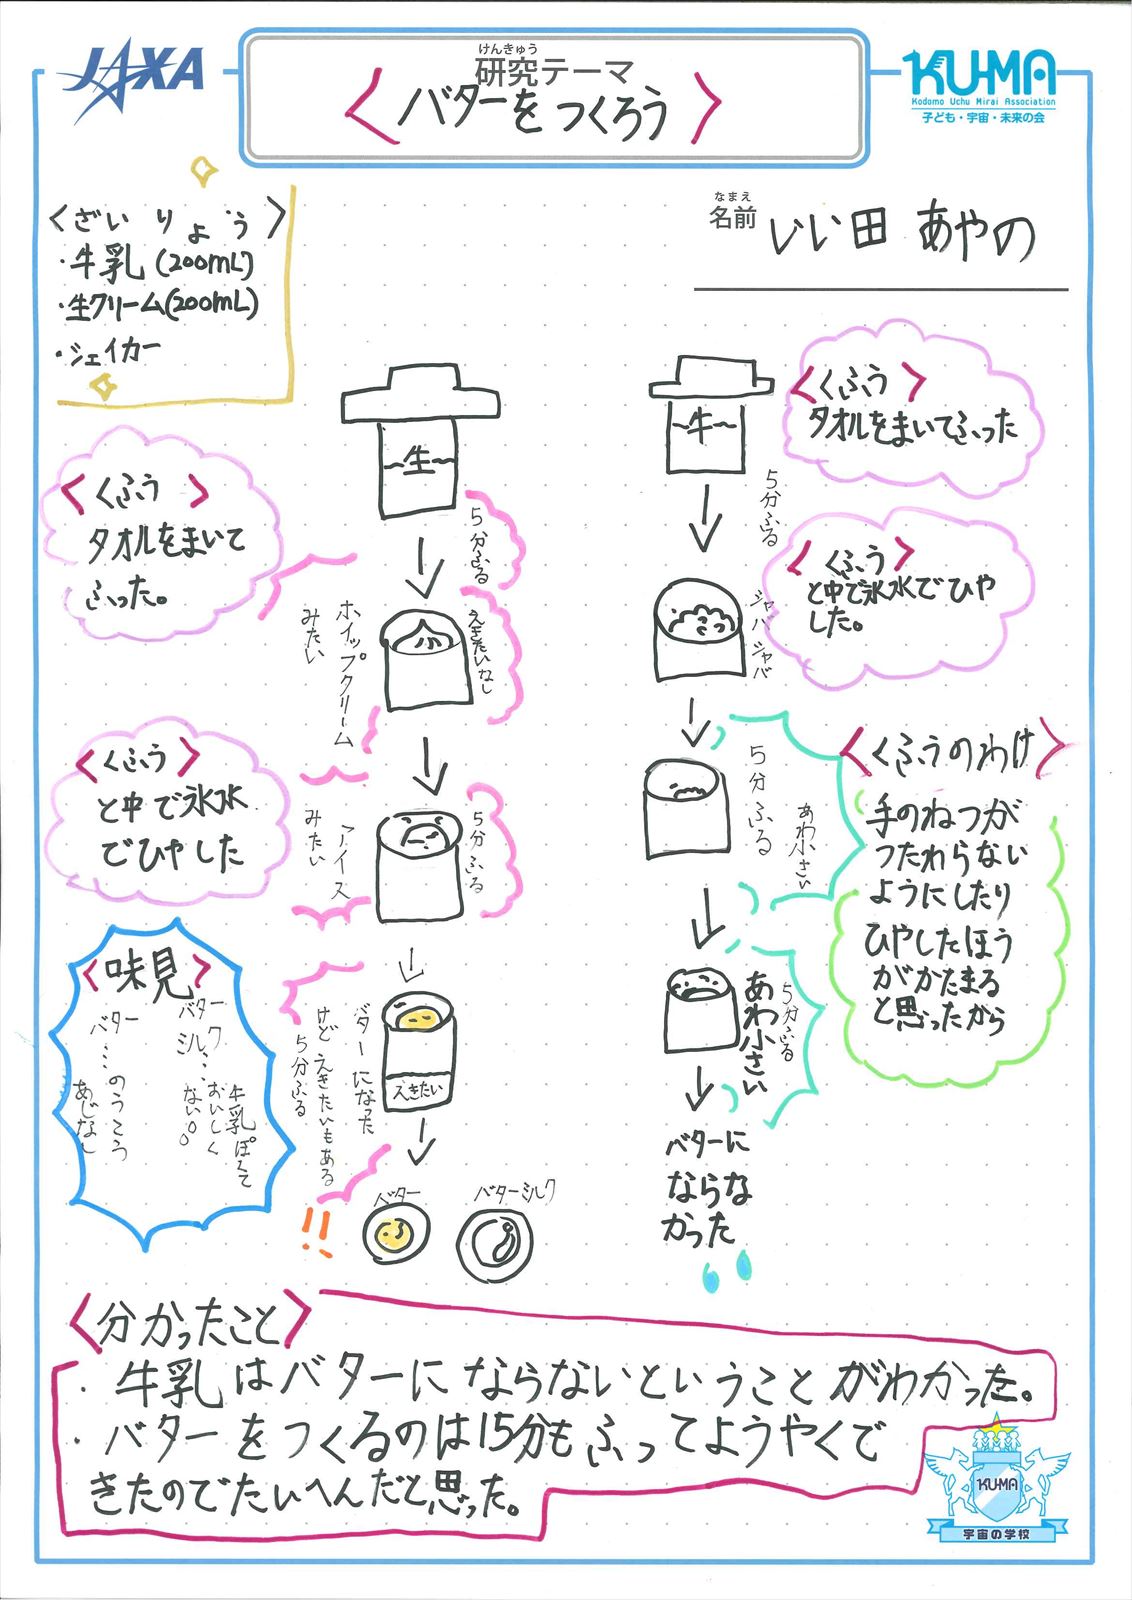 JAXA
けんきゅう
研究テーマ
〈バターをつくろう〉
KU-MA
Kodomo Uchu Mirai Association
子ども・宇宙・未来の会
なまえ
名前
いい田 あやの
〈ざいりょう〉
・牛乳(200mL)
・生クリーム(200mL)
・シェイカー
〈くふう〉
タオルをまいて
ふった。
生
5分ふる
ホイップクリーム
みたい
えきたいなし
〈くふう〉
と中で氷水
でひやした
アイス
みたい
5分ふる
バターになった
けどえきたいもある
5分ふる
えきたい
バター
バターミルク
!!
〈味見〉
バター
ミルク…
牛乳ぽくて
おいしく
ない。。
バター
バ…のうこう
あじなし
牛
〈くふう〉
タオルをまいてふった
5分ふる
〈くふう〉
と中で氷水でひや
した。
シャバ
シャバ
5分ふる
あわ小さい
〈くふうのわけ〉
手のねつが
つたわらない
ようにしたり
ひやしたほう
がかたまる
と思ったから
5分ふる
あわ小さい
バターに
ならな
かった
〈分かったこと〉
・牛乳はバターにならないということがわかった。
・バターをつくるのは15分もふってようやくで
きたのでたいへんだと思った。
KU-MA
宇宙の学校